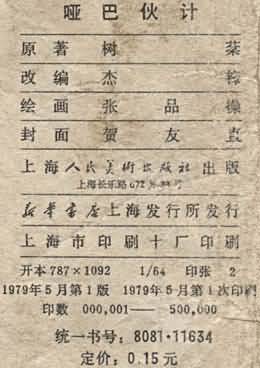 哑巴伙计
原著 树棻
改编 杰
绘画 张品操
封面 贺友直
上海人民美术出版社出版
上海长乐路672弄33号
新华书店上海发行所发行
上海市印刷十厂印刷
开本787×1092 1/64 印张 2
1979年5月第1版 1979年5月第1次印刷
印数 000,001——500,000
统一书号：8081·11634
定价：0.15元